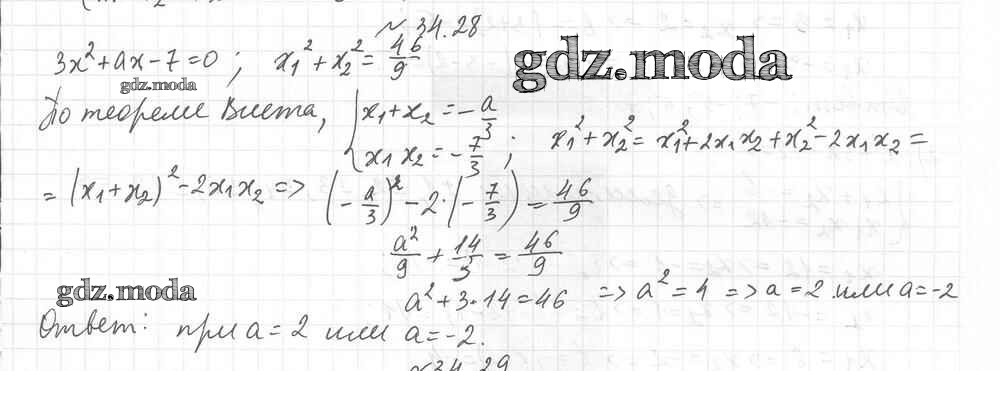 № 34.28
3x² + ax − 7 = 0 ; x₁² + x₂² = 46/9
gdz.moda
gdz.moda
По теореме Виета, { x₁ + x₂ = − a/3
x₁ x₂ = − 7/3 ; x₁² + x₂² = x₁² + 2x₁x₂ + x₂² − 2x₁x₂ =
= (x₁ + x₂)² − 2x₁x₂ => (− a/3)² − 2·(− 7/3) = 46/9
a²/9 + 14/3 = 46/9
gdz.moda
a² + 3·14 = 46 => a² = 4 => a = 2 или a = −2
Ответ: при a = 2 или a = −2.
№ 34.29